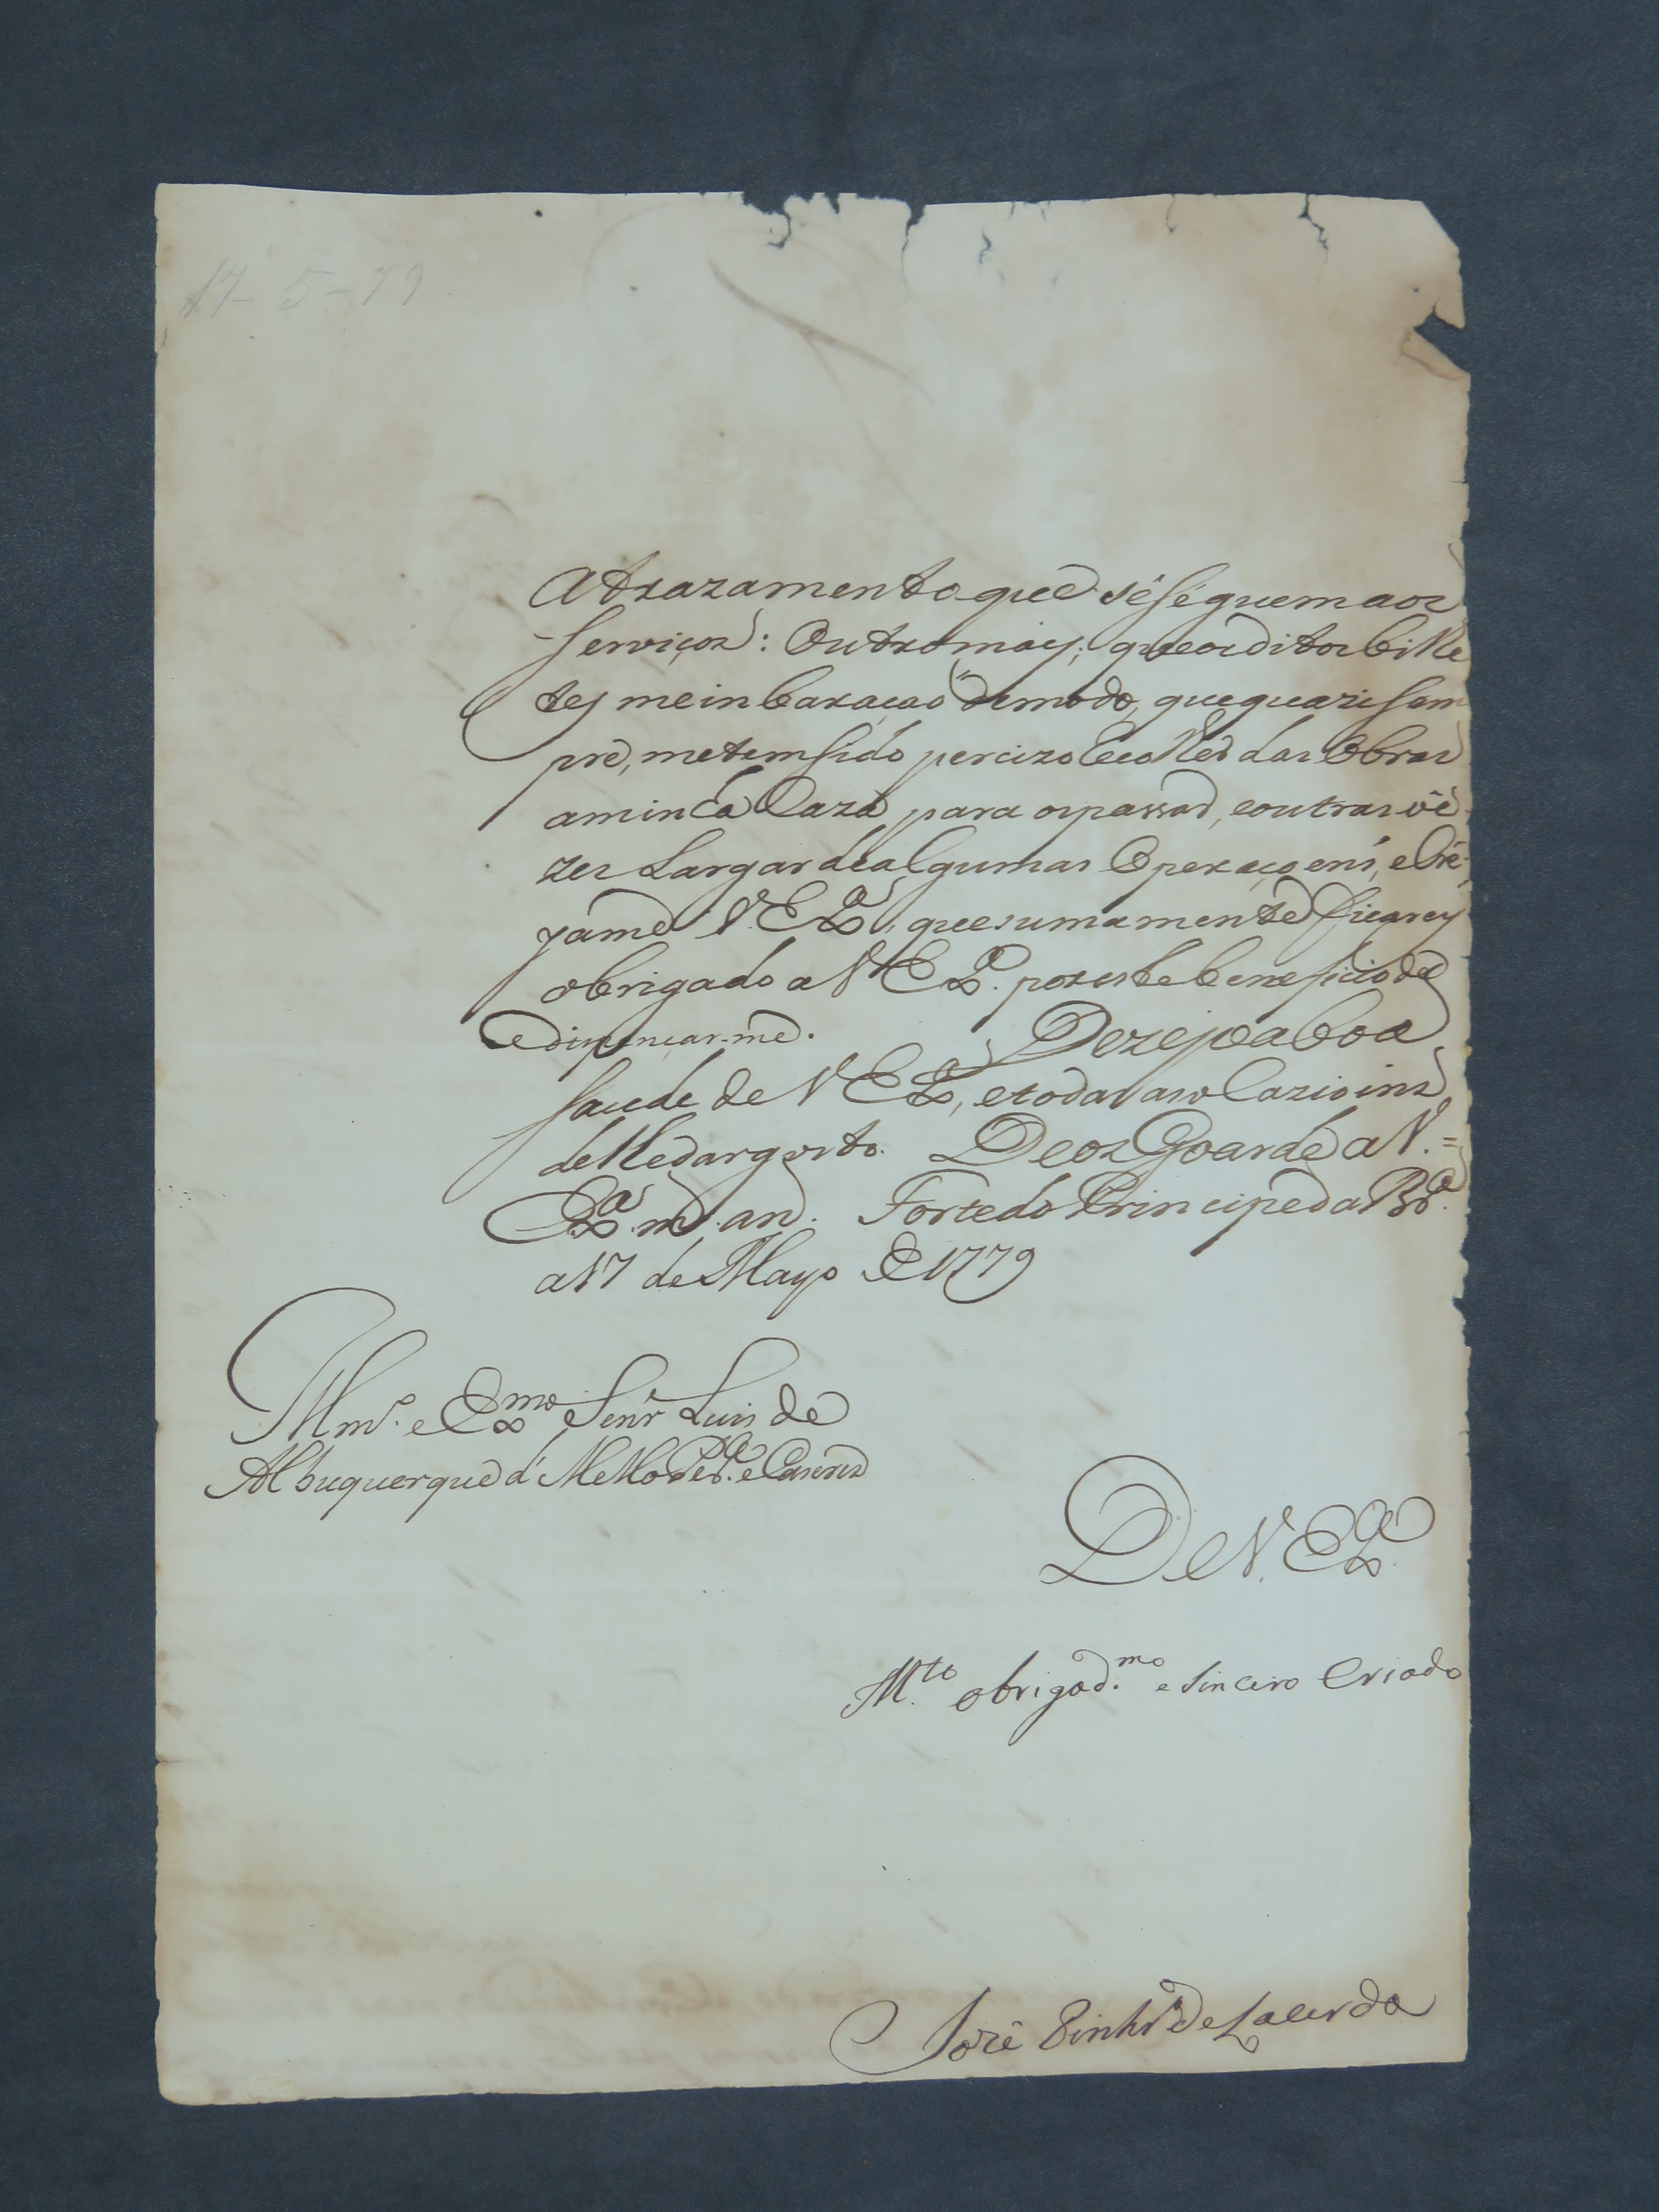 17-5-79
atrazamento que se seguem aos
Serviços: Outro mais, que os ditos bilhe
tes me inbaraçaõ de modo, que quazi Sem
pre, me tem Sido percizo das Obras
a minha Caza para os passar, e outras vê
zes Largar de algumas Operaçoens, e Crê
yame V. Exª, que sumamente ficarey
obrigado a V. Exª. por este beneficio de
dispençar-me. Dezejo a boa
Saude de V. Exª, e todas as ocazioins
de lhe dar gosto. Deos Goarde a V. =
Exª. ms. ans. Forte do Principe da Brª.
a 17 de Mayo de 1779
Illmº. e Exmo Senr Luis de
Albuquerque d' Mello Perª. e Caseres
De V. Exª.
M.to obrigad.mo e Sincero Criado
José Pinhrº de Lacerda